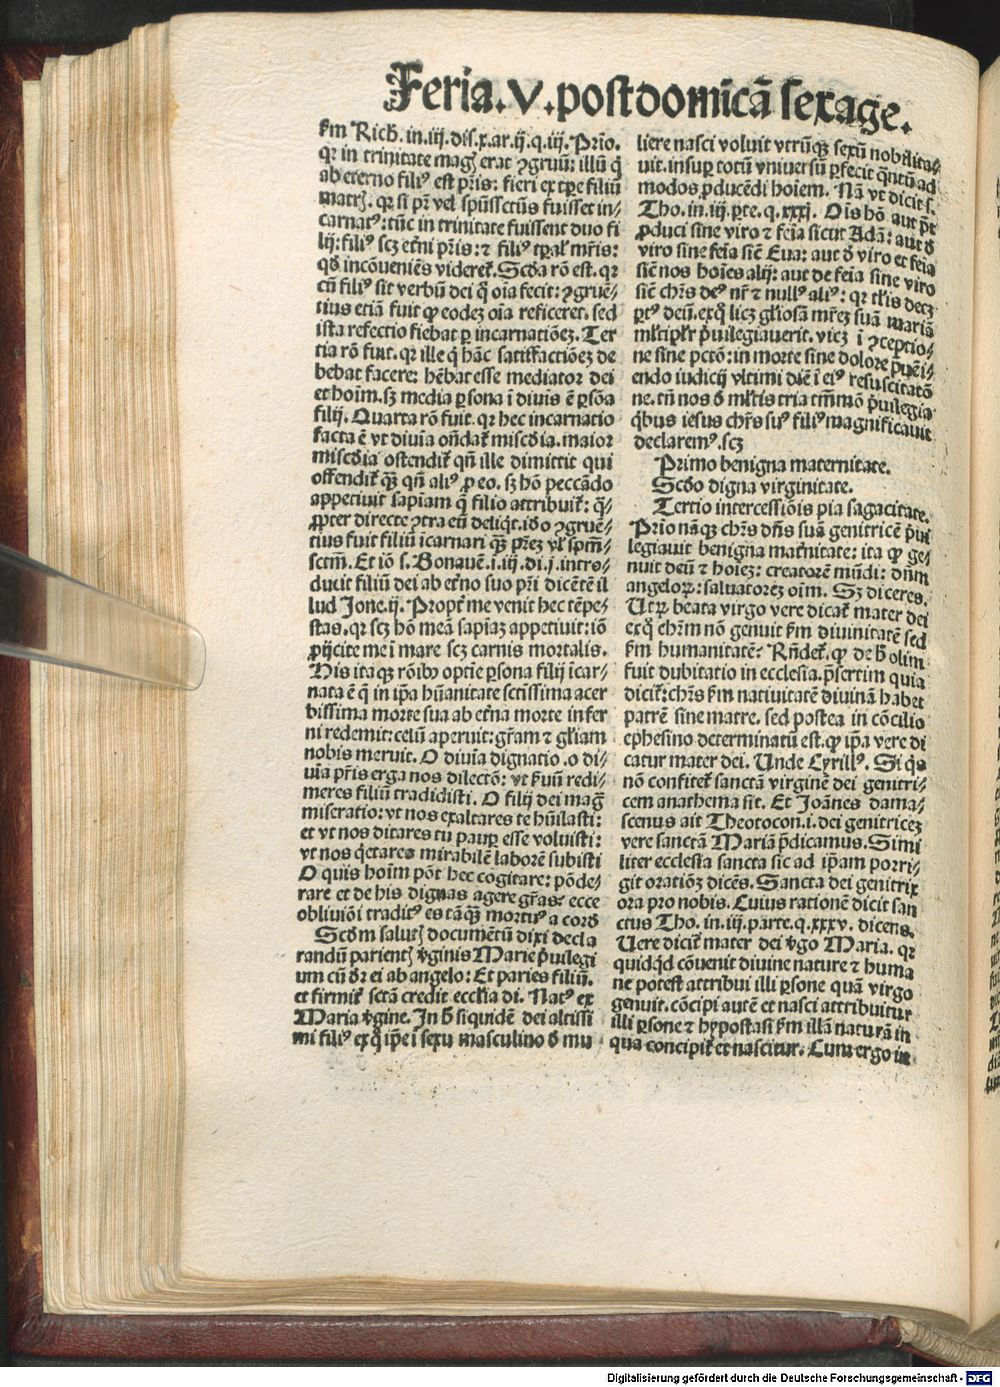 Feria. V. post domicã sexage.
ẜm Rich. in. iij. dis. x. ar. ij. q. iij. Prio.
qr in trinitate mag̃ erat ꝯgruũ: illũ q̃
ab eterno filiꝰ est pr̃is: fieri ex tꝑe filiũ
matrꝭ. qr si pr̃ vel spũssctũs fuisset in⸗
carnatꝰ: tũc in trinitate fuissent duo fi
lij: filiꝰ scꝫ et̃ni pr̃is: ⁊ filiꝰ tꝑal' mr̃is:
qđ incõueniẽs videret̃. Scđa rõ est. qr
cũ filiꝰ sit verbũ dei ꝑ q̃ oĩa fecit: ꝯgruẽ⸗
tius etiã fuit ꝙ eodeꝫ oĩa reficeret. sed
ista refectio fiebat ꝑ incarnatiõeꝫ. Ter
tia rõ fuit. qr ille q̃ hãc satisfactiõeꝫ de
bebat facere: hẽbat esse mediator dei
et hoĩm. sꝫ media ꝑsona ĩ diuĩs ẽ ꝑsõa
filij. Quarta rõ fuit. qr hec incarnatio
facta ẽ vt diuĩa oñdat̃ miscđia. maior
miscđia ostendit̃ qñ ille dimittit qui
offendit̃ qꝫ qñ aliꝰ ꝓ eo. sꝫ hõ peccãdo
appetiuit sapiam q̃ filio attribuit̃: q̃⸗
ꝓpter directe ꝯtra eũ deliq̃t. iđo ꝯgruẽ⸗
tius fuit filiũ ĩcarnari qꝫ pr̃eꝫ vl' spm̃⸗
sctm̃. Et iõ s. Bonauẽ. i. iij. di. j. intro⸗
ducit filiũ dei ab et̃no suo pr̃i dicẽtẽ il
lud Jone. ij. Propt̃ me venit hec tẽpe⸗
stas. qr scꝫ hõ meã sapiaꝫ appetiuit: iõ
ꝓijcite me ĩ mare scꝫ carnis mortalis.
His itaqꝫ rõibꝰ optĩe ꝑsona filij ĩcar⸗
nata ẽ q̃ in ip̃a hũanitate sctĩssima acer
bissima morte sua ab et̃na morte infer
ni redemit: celũ aperuit: gr̃am ⁊ gl̃iam
nobis meruit. O diuĩa dignatio. o di⸗
uĩa pr̃is erga nos dilectõ: vt ẜuũ redi⸗
meres filiũ tradidisti. O filij dei mag̃
miseratio: vt nos exaltares te hũilasti:
et vt nos ditares tu pauꝑ esse voluisti:
vt nos q̃etares mirabilẽ laborẽ subisti
O quis hoĩm põt hec cogitare: põde⸗
rare et de his dignas agere gr̃as: ecce
obliuiõi traditꝰ es tãqꝫ mortuꝰ a corđ
Scđm salutꝭ documẽtũ dixi decla
randũ parientꝭ ṽginis Marie p̃uilegi
um cũ dr̃ ei ab angelo: Et paries filiũ.
et firmit̃ sctã credit eccl̃ia di. Natꝰ ex
Maria ṽgine. In h̃ siquidẽ dei altissi
mi filiꝰ ex q̃ ip̃e ĩ sexu masculino đ mu
liere nasci voluit vtrũqꝫ sexũ nobilita⸗
uit. insuꝑ totũ vniuersũ ꝑfecit q̃ntũ ad
modos ꝓducẽdi hoĩem. Nã vt dicit s.
Tho. in. iij. ꝑte. q. xxxj. Oĩs hõ aut põt
ꝓduci sine viro ⁊ feĩa sicut Adã: aut đ
viro sine feĩa siẽ Eua: aut đ viro et feĩa
siẽ nos hoĩes alij: aut de feĩa sine viro
siẽ chr̃s deꝰ nr̃ ⁊ nullꝰ aliꝰ: qr tl̃is decꝫ
ꝑtꝰ deũ. ex q̃ licꝫ gl̃iosã mr̃eꝫ suã mariã
ml̃tipl'r p̃uilegiauerit. viꝫ ĩ ꝯceptio⸗
ne sine pctõ: in morte sine dolore p̃uẽi⸗
endo iudicij vltimi diẽ ĩ eiꝰ resuscitatõ
ne. tñ nos đ ml̃tis tria tm̃mõ p̃uilegia
q̃bus iesus chr̃s suꝰ filiꝰ magnificauit
declaremꝰ. scꝫ
Primo benigna maternitate.
Scđo digna virginitate.
Tertio intercessiõis pia sagacitate.
Prĩo nãqꝫ chr̃s dñs suã genitricẽ p̃ui
legiauit benigna mat̃nitate: ita ꝙ ge⸗
nuit deũ ⁊ hoĩeꝫ: creatorẽ mũdi: dñm
angeloꝝ: saluatoreꝫ oĩm. Sꝫ diceres.
Utꝝ beata virgo vere dicat̃ mater dei
ex q̃ chr̃m nõ genuit ẜm diuinitatẽ sed
ẜm humanitatẽ? Rñdet̃. ꝙ de h̃ olim
fuit dubitatio in ecclesia. p̃sertim quia
dicit̃: chr̃s ẜm natiuitatẽ diuinã habet
patrẽ sine matre. sed postea in cõcilio
ephesino determinatũ est. ꝙ ip̃a vere di
catur mater dei. Unde Cyrillꝰ. Si q̃s
nõ confitet̃ sanctã virginẽ dei genitri⸗
cem anathema sit. Et Joãnes dama⸗
scenus ait Theotocon. i. dei genitriceꝫ
vere sanctã Mariã p̃dicamus. Simi
liter ecclesia sancta sic ad ip̃am porri⸗
git oratiõꝫ dicẽs. Sancta dei genitrix
ora pro nobis. Cuius rationẽ dicit san
ctus Tho. in. iij. parte. q. xxxv. dicens.
Uere dicit̃ mater dei ṽgo Maria. qr
quidq̃d cõuenit diuine nature ⁊ huma
ne potest attribui illi ꝑsone quã virgo
genuit. cõcipi autẽ et nasci attribuitur
illi ꝑsone ⁊ hypostasi ẜm illã naturã in
qua concipit̃ et nascitur. Cum ergo in
Digitalisierung gefördert durch die Deutsche Forschungsgemeinschaft - DFG